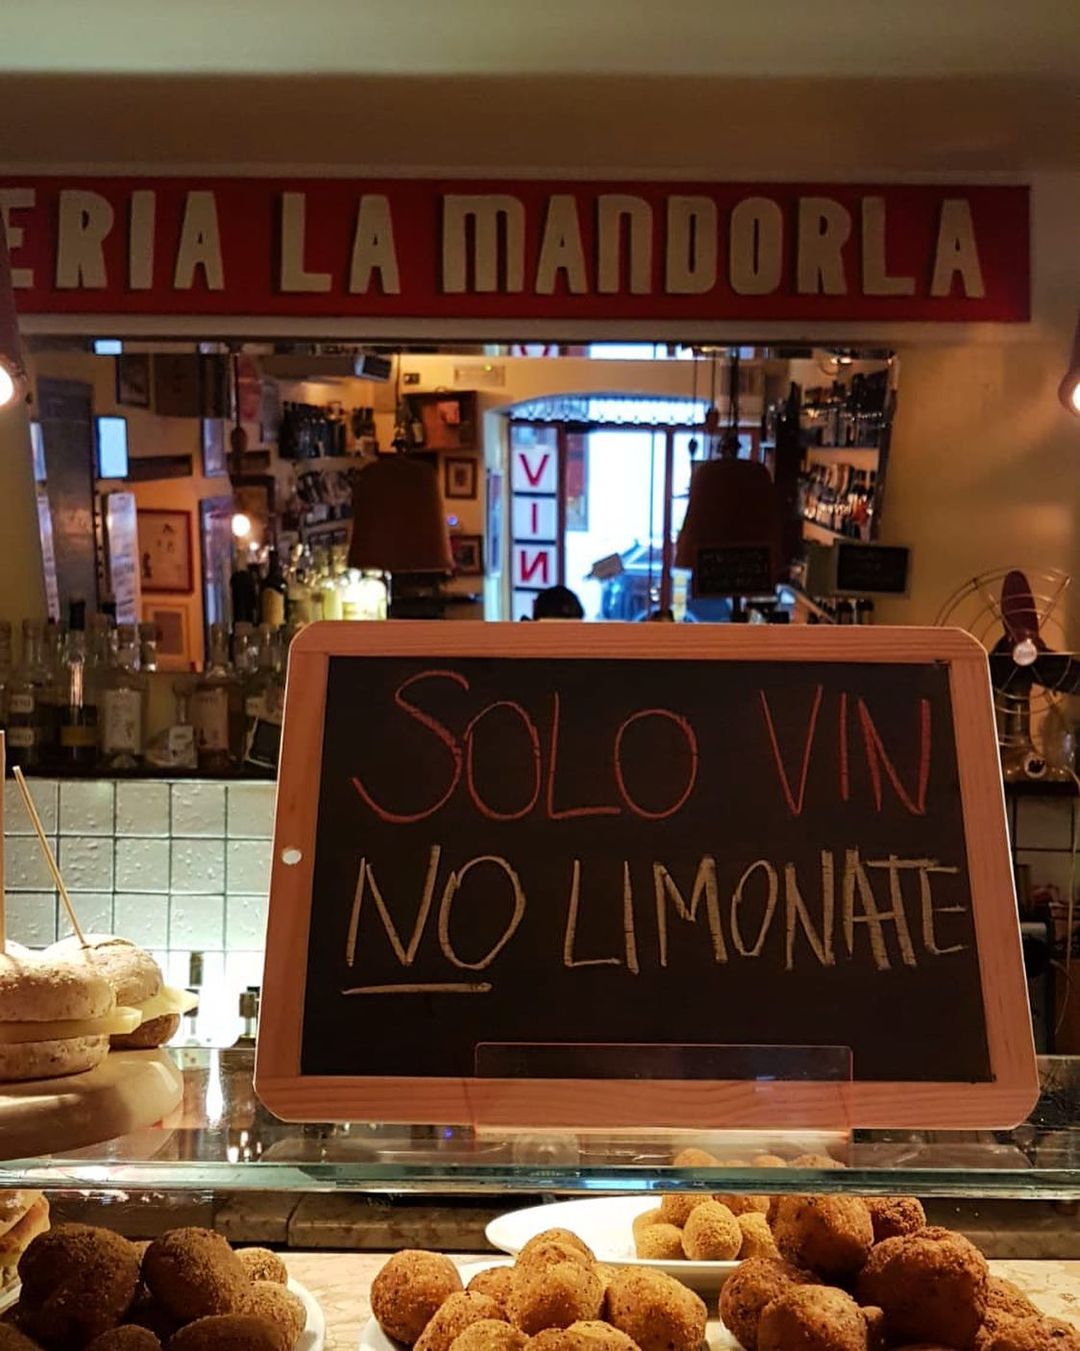 ERIA LA MANDORLA
VIN
SOLO VIN
NO LIMONATE